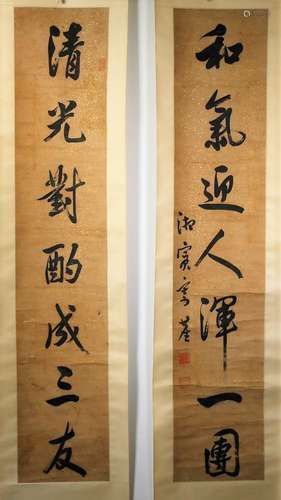 和氣迎人渾一團
清光對酌成三友